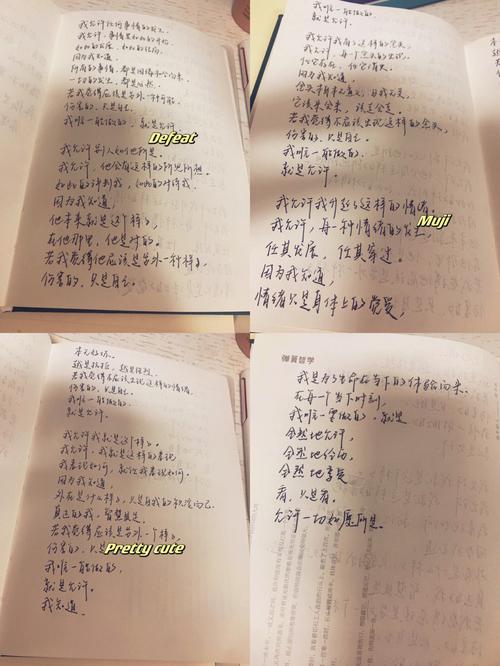 我允许任何事情的发生
我允许,事情是如此的开始
如此的发展,如此的结局
因为我知道,
所有的事情,都是因缘和合而来
一切的发生,都是必然
若我觉得应该是另外一种可能
伤害的,只是自己
我唯一能做的,就是允许
Defeat
我允许别人如他所是。
我允许,他会有这样的所思所想。
如此的评判我,如此的对待我
因为我知道,
他本来就是这个样子,
在他那里,他是对的。
若我觉得他应该是另外一种样子,
伤害的,只是自己。
我唯一能做的。
就是允许。
我允许我有了这样的念头,
我允许,每一个念头的出现,
任它存在,任它消失。
因为我知道,
念头本身本无意义,与我无关,
它该来会来,该走会走。
若我觉得不应该出现这样的念头,
伤害的,只是自己
我唯一能做的,
就是允许。
我允许我升起了这样的情绪,
我允许,每一种情绪的发生,
任其发展,任其穿过。
Muji
因为我知道,
情绪只是身体上的觉受,
本无好坏。
越是抗拒,越是强烈。
若我觉得不应该出现这样的情绪,
伤害的,只是自己
我唯一能做的,
就是允许。
我允许我就是这个样子。
我允许,我就是这样的表现
我表现如何,就任我表现如何。
因为我知道,
外在是什么样子,只是自我的积淀而已
真正的我,智慧具足。
若我觉得应该是另外一个样子,
伤害的,只是自己
Pretty cute
我唯一能做的,
就是允许。
我知道
弹簧哲学
我是为了生命在当下的体验而来。
在每一个当下时刻
我唯一要做的,就是
全然地允许,
全然地经历
全然地享受
看,只是看。
允许一切如其所是。